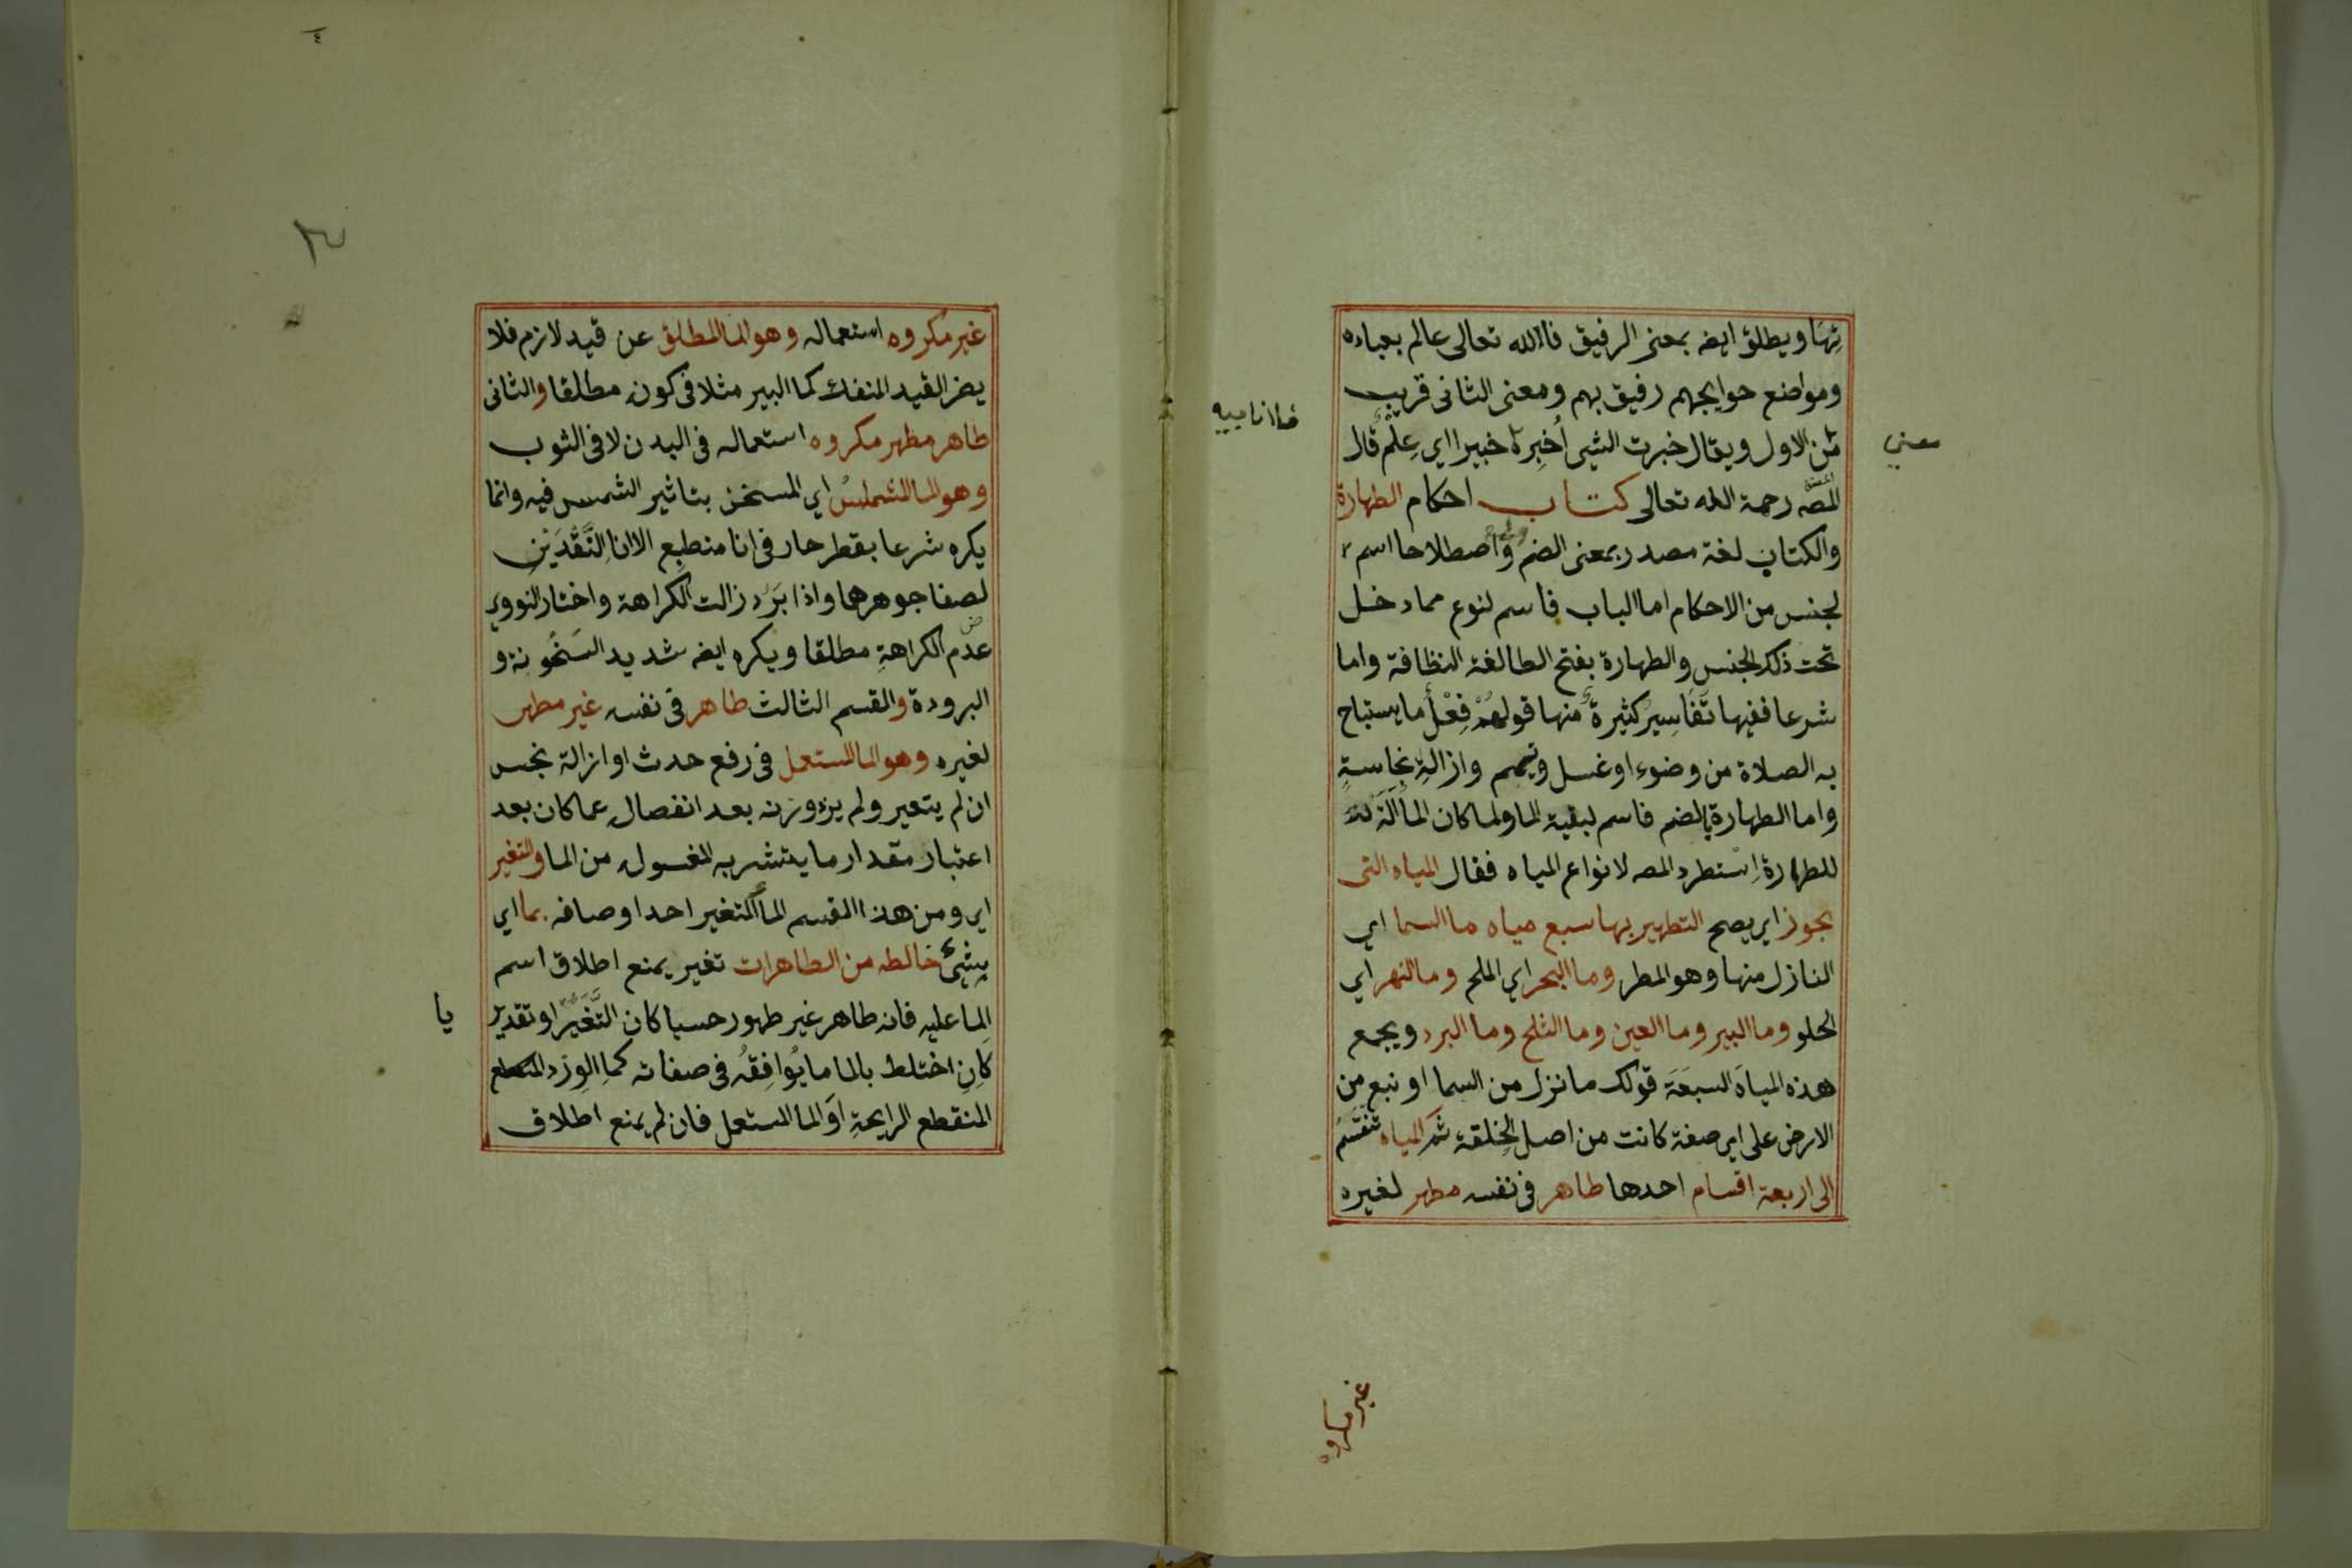 تها ويطلق ايضه بمعنى الرفيق فالله تعالى عالم بعباده
ومواضع حوايجهم رفيق بهم ومعنى الثاني قريب
معني
من الاول ويقال خبرت الشيى أُخبره خبيرا اي عِلمٌ قال
المصه رحمة الله تعالى كتاب احكام الطهارة
والكتاب لغة مصدر بمعنى الضم واصطلاحا اسم
لجنس من الاحكام اما الباب فاسم لنوع مما دخل
تحت ذلك الجنس والطهارة بفتح الطا لغة النظافة واما
شرعا ففيها تَفَاسِيرُ كثيرةٌ منها قولهُمْ فِعْلُ ما يستباح
به الصلاة من وضوء او غسل وتيمم وازالةِ نجاسةٍ
واما الطهارة بالضم فاسم لبقية الما ولما كان الما آلة
للطهارةِ اِستطرد المصه لانواع المياه فقال المياه التى
يجوز اي يصح التطهير بها سبع مياه ما السما اي
النازل منها وهو المطر وما البحر اي الملح وما النهر اي
الحلو وما البير وما العين وما الثلج وما البرد ويجمع
هذه المياهَ السبعَةَ قولك ما نزل من السما او نبع من
الارض على اي صفة كانت من اصل الخِلقة ثم المياه تنقسم
الى اربعة اقسام احدها طاهر في نفسه مطهر لغيره
غير مكروه
غير مكروه استعماله وهو الما المطلق عن قيد لازم فلا
يضر القيد المنفك كما البير مثلا فى كونه مطلقا والثانى
طاهر مطهر مكروه استعماله فى البدن لا فى الثوب
وهو الما المشمس اي المسخن بتاثير الشمس فيه وانما
يكره شرعا بقطر حار فى انا منطبع الا انا النَّقْدَيْنِ
لصفا جوهرهما واذا بَرَد زالت الكراهة واختار النووي
عدم الكراهةِ مطلقا ويكره ايضه شديد السخُونة و
البرودة والقسم الثالث طاهر فى نفسه غير مطهر
لغيره وهو الما المستعمل فى رفع حدث او ازالة نجس
ان لم يتغير ولم يزد وزنه بعد انفصاله عما كان بعد
اعتبار مقدار ما يتشربه المغسول من الما والتغير
اي ومن هذا القسم الما المتغير احد اوصافه بما اي
بشىءٍ خالطه من الطاهرات تغير يمنع اطلاق اسم
الما عليه فانه طاهر غير طهور حسيا كان التَّغَيُّر او تقدير
يا
كَانِ اختلط بالما ما يُوَافِقُهُ فى صفاته كما الورد
المنقطع الرايحةِ اوَ الما المستعمل فان لم يمنع اطلاق